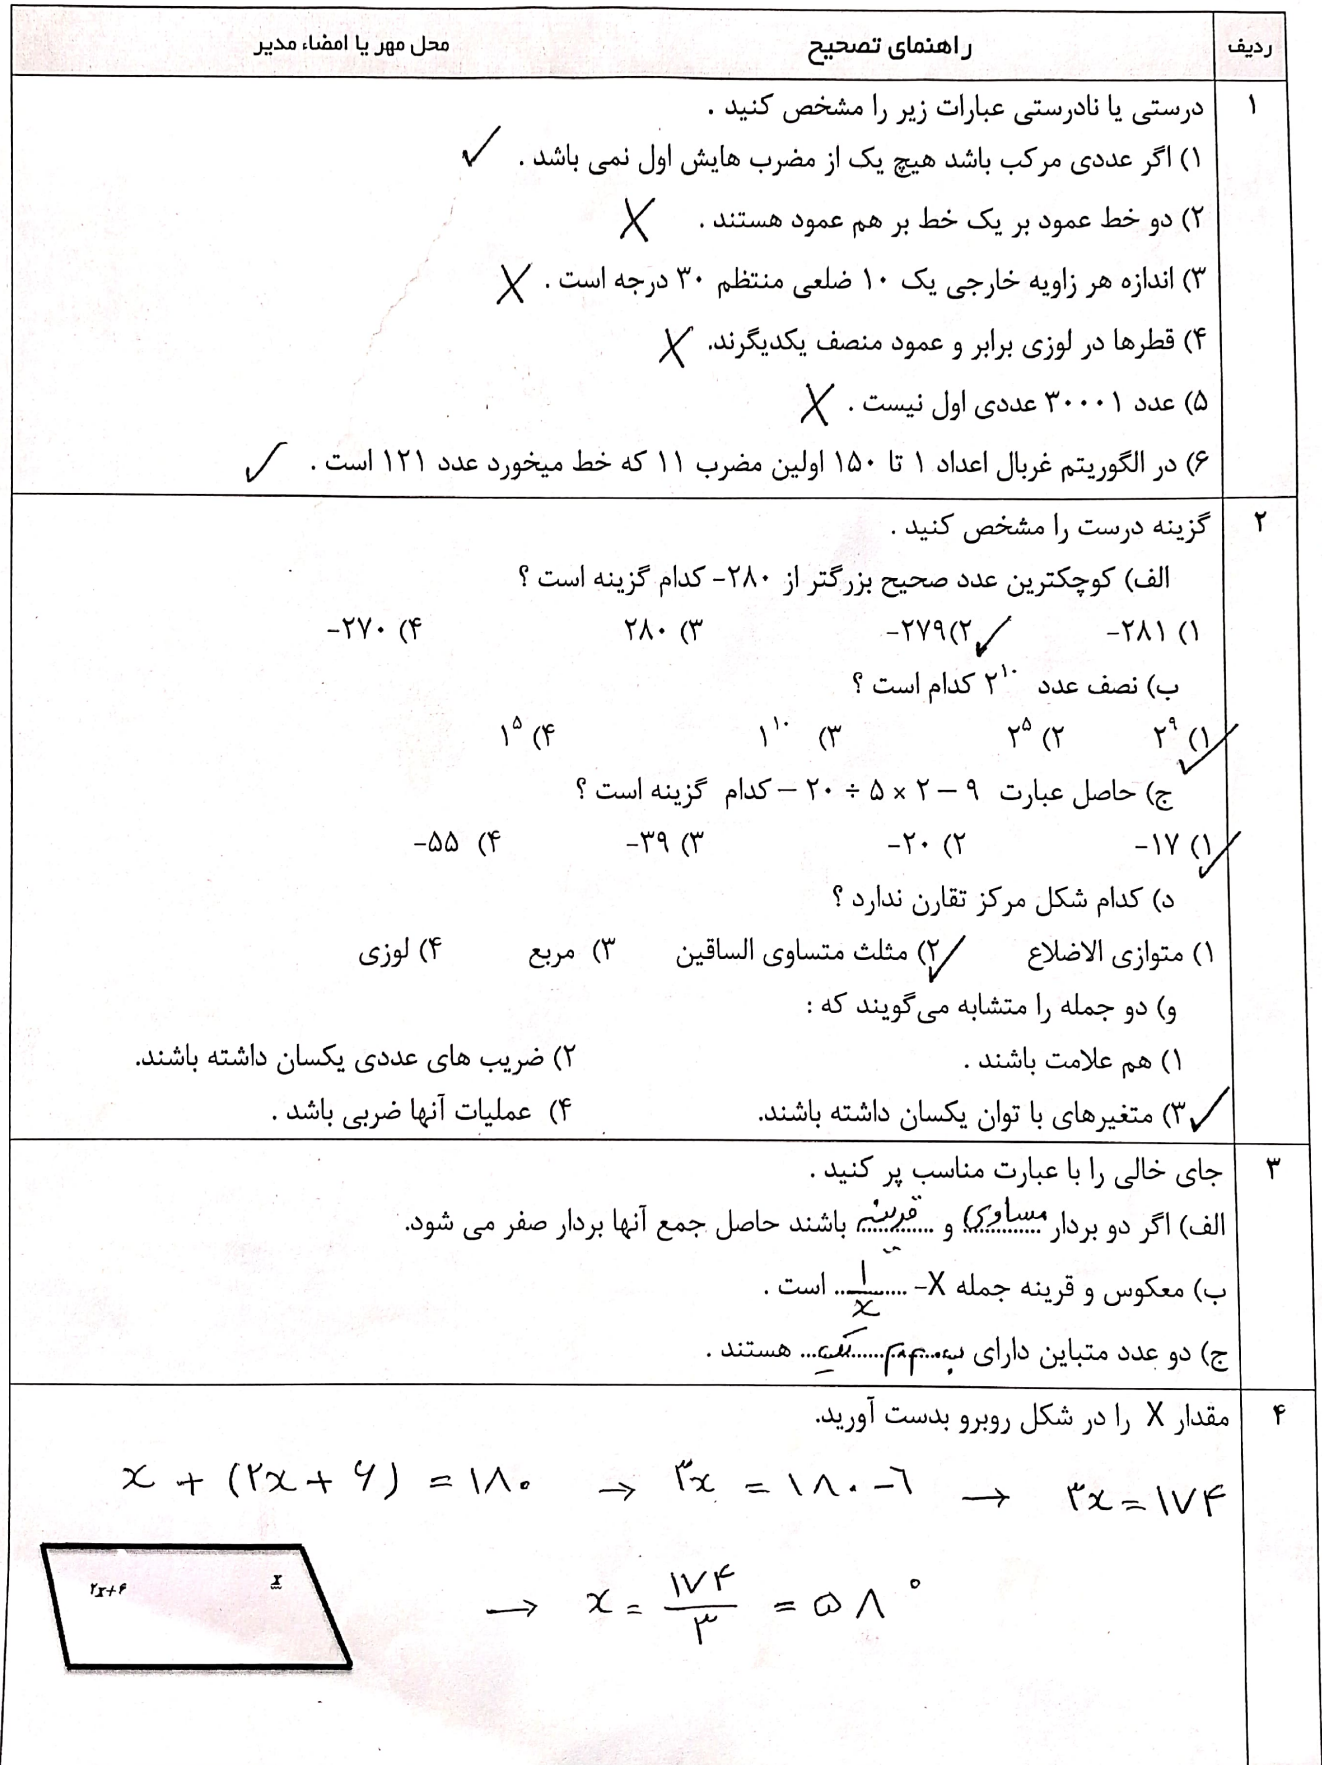 ردیف راهنمای تصحیح محل مهر یا امضاء مدیر
۱ درستی یا نادرستی عبارات زیر را مشخص کنید .
۱) اگر عددی مرکب باشد هیچ یک از مضرب هایش اول نمی باشد . ✓
۲) دو خط عمود بر یک خط بر هم عمود هستند . X
۳) اندازه هر زاویه خارجی یک ۱۰ ضلعی منتظم ۳۰ درجه است . X
۴) قطرها در لوزی برابر و عمود منصف یکدیگرند. X
۵) عدد ۳۰۰۰۱ عددی اول نیست . X
۶) در الگوریتم غربال اعداد ۱ تا ۱۵۰ اولین مضرب ۱۱ که خط میخورد عدد ۱۲۱ است . ✓
۲ گزینه درست را مشخص کنید .
الف) کوچکترین عدد صحیح بزرگتر از ۲۸۰- کدام گزینه است ؟
۱) ۲۸۱- ۲) ۲۷۹- ✓ ۳) ۲۸۰ ۴) ۲۷۰-
ب) نصف عدد ۲^۱۰ کدام است ؟
۱) ۲^۹ ✓ ۲) ۲^۵ ۳) ۱^۱۰ ۴) ۱^۵
ج) حاصل عبارت − ۲۰ ÷ ۵ × ۲ − ۹ کدام گزینه است ؟
۱) ۱۷- ✓ ۲) ۲۰- ۳) ۳۹- ۴) ۵۵-
د) کدام شکل مرکز تقارن ندارد ؟
۱) متوازی الاضلاع ۲) مثلث متساوی الساقین ✓ ۳) مربع ۴) لوزی
و) دو جمله را متشابه می‌گویند که :
۱) هم علامت باشند . ۲) ضریب های عددی یکسان داشته باشند.
۳) متغیرهای با توان یکسان داشته باشند. ✓ ۴) عملیات آنها ضربی باشد .
۳ جای خالی را با عبارت مناسب پر کنید .
الف) اگر دو بردار مساوی و قرینه باشند حاصل جمع آنها بردار صفر می شود.
ب) معکوس و قرینه جمله X- ۱/x است .
ج) دو عدد متباین دارای ب.م.م یک هستند .
۴ مقدار X را در شکل روبرو بدست آورید.
x + (۲x + ۶) = ۱۸۰ → ۳x = ۱۸۰ - ۶ → ۳x = ۱۷۴
۲x+۶ x
→ x = ۱۷۴/۳ = ۵۸°